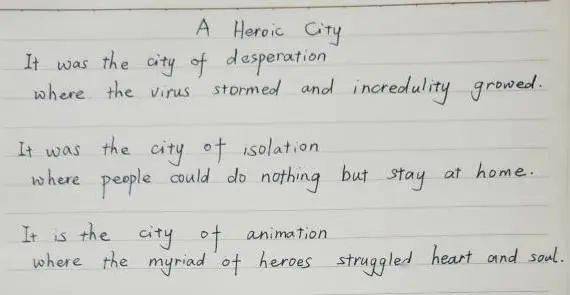 A Heroic City
It was the city of desperation
where the virus stormed and incredulity growed.
It was the city of isolation
where people could do nothing but stay at home.
It is the city of animation
where the myriad of heroes struggled heart and soul.